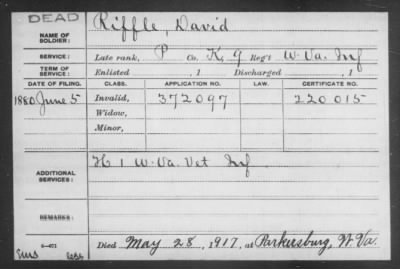 DEAD
NAME OF SOLDIER: Riffle, David
SERVICE: Late rank, P Co. K, 9 Reg't W. Va. Inf
TERM OF SERVICE: Enlisted , 1 Discharged , 1
DATE OF FILING. CLASS. APPLICATION NO. LAW. CERTIFICATE NO.
1880 June 5 Invalid, 372097 220015
Widow,
Minor,
ADDITIONAL SERVICES: H 1 W. Va. Vet Inf
REMARKS:
Died May 28, 1917, at Parkersburg, W. Va.